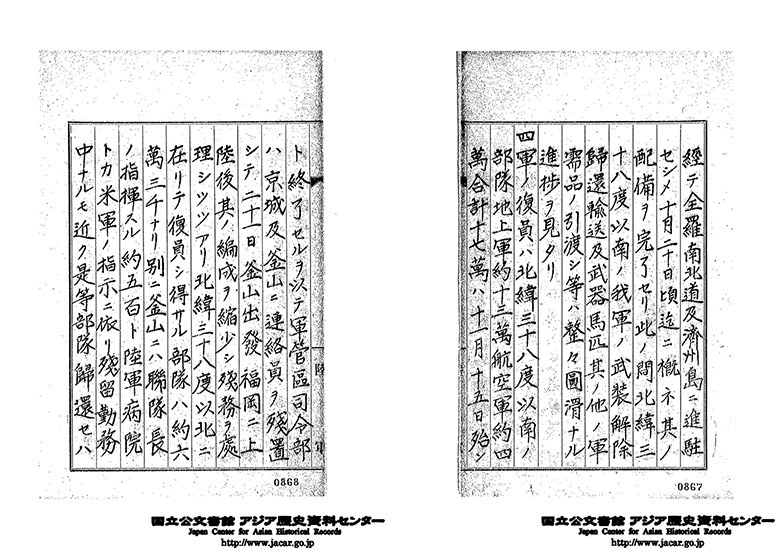 經テ全羅南北道及濟州島ニ進駐
セシメ十月二十日頃迄ニ概ネ其ノ
配備ヲ完了セリ此ノ間北緯三
十八度以南ノ我軍ノ武装解除
歸還輸送及武器馬匹其ノ他ノ軍
需品ノ引渡シ等ハ整々圓滑ナル
進捗ヲ見タリ
四軍ノ復員ハ北緯三十八度以南ノ
部隊地上軍約十三萬航空軍約四
萬合計十七萬ハ十一月十五日殆ン
0867
ト終了セルヲ以テ軍管區司令部
ハ京城及釜山ニ連絡員ヲ殘置
シテ二十一日釜山出發福岡ニ上
陸後其ノ編成ヲ縮少シ殘務ヲ處
理シツツアリ北緯三十八度以北ニ
在リテ復員シ得サル部隊ハ約六
萬三千ナリ別ニ釜山ニハ聯隊長
ノ指揮スル約五百ト陸軍病院
トカ米軍ノ指示ニ依リ殘留勤務
中ナルモ近ク是等部隊歸還セハ
陸軍
0868
国立公文書館 アジア歴史資料センター
Japan Center for Asian Historical Records
http://www.jacar.go.jp
国立公文書館 アジア歴史資料センター
Japan Center for Asian Historical Records
http://www.jacar.go.jp